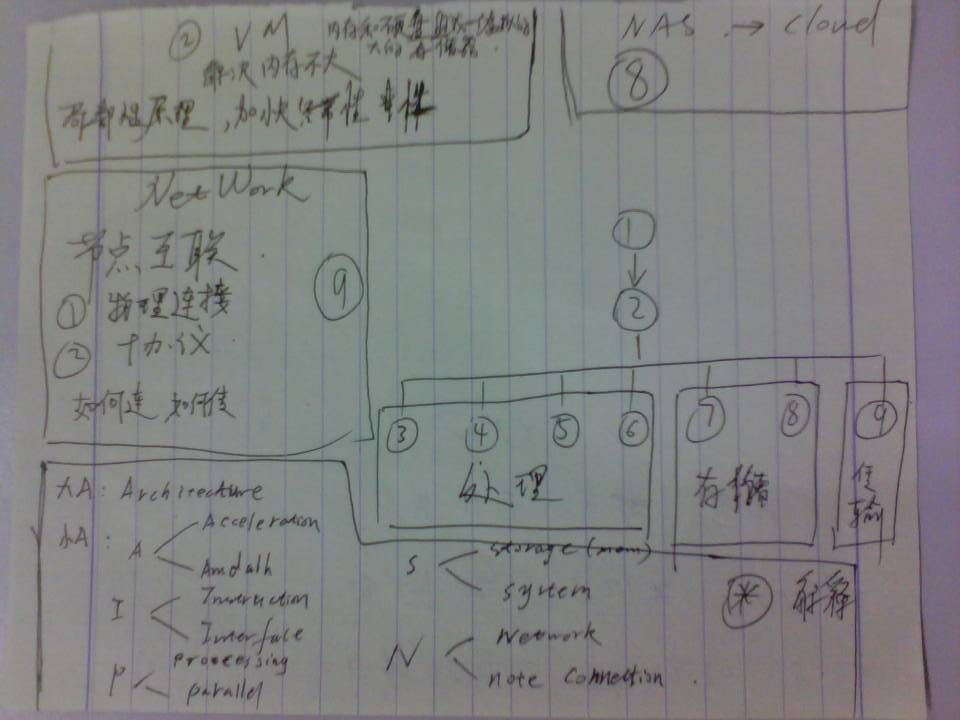 ② VM
内存和硬盘组成一个虚拟的
大的存储器
解决内存不大
局部性原理,加快经常性事件
NAS → cloud
⑧
NetWork
节点互联
① 物理连接
② 协议
如何连 如何传
⑨
①
②
③ ④ ⑤ ⑥ ⑦ ⑧ ⑨
处理 存储 传输
大A: Architecture
小A:
A Acceleration
Amdalh
I Instruction
Interface
P Processing
parallel
S Storage (mem)
System
N Network
note connection.
* 解释